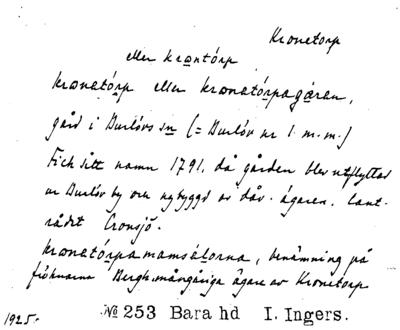 Kronetorp
eller krantórp
krænatórp eller krænatórpagáran,
gård i Burlövs sn (= Burlöv nr 1 m.m.)
Fick sitt namn 1791, då gården blev utflyttad
ur Burlöv by och nybyggd av dåv. ägaren, lant-
rådet Cronsjö.
krænatórpamamsálorna, benämning på
fröknarna Bergh, mångåriga ägare av Kronetorp
1925.
№ 253 Bara hd I. Ingers.